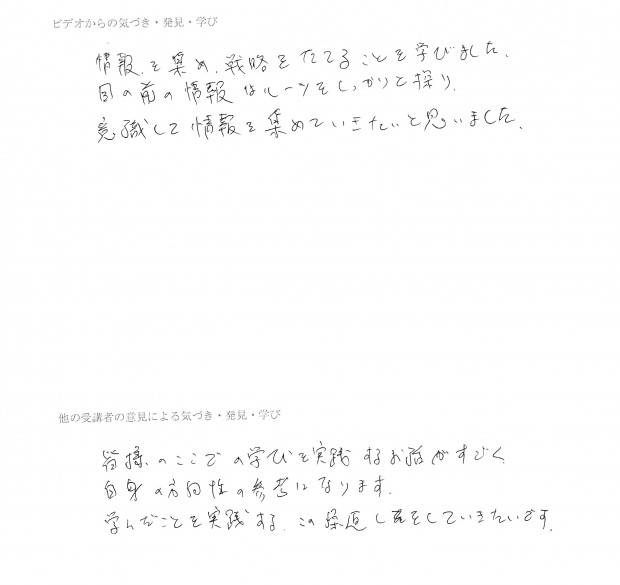 ビデオからの気づき・発見・学び
情報を集め、戦略をたてることを学びました、
目の前の情報はルーツをしっかりと探り、
意識して情報を集めていきたいと思いました。
他の受講者の意見による気づき・発見・学び
皆様のここでの学びを実践するお話がすごく
自身の方向性の参考になります。
学んだことを実践する、この をしていきたいです。